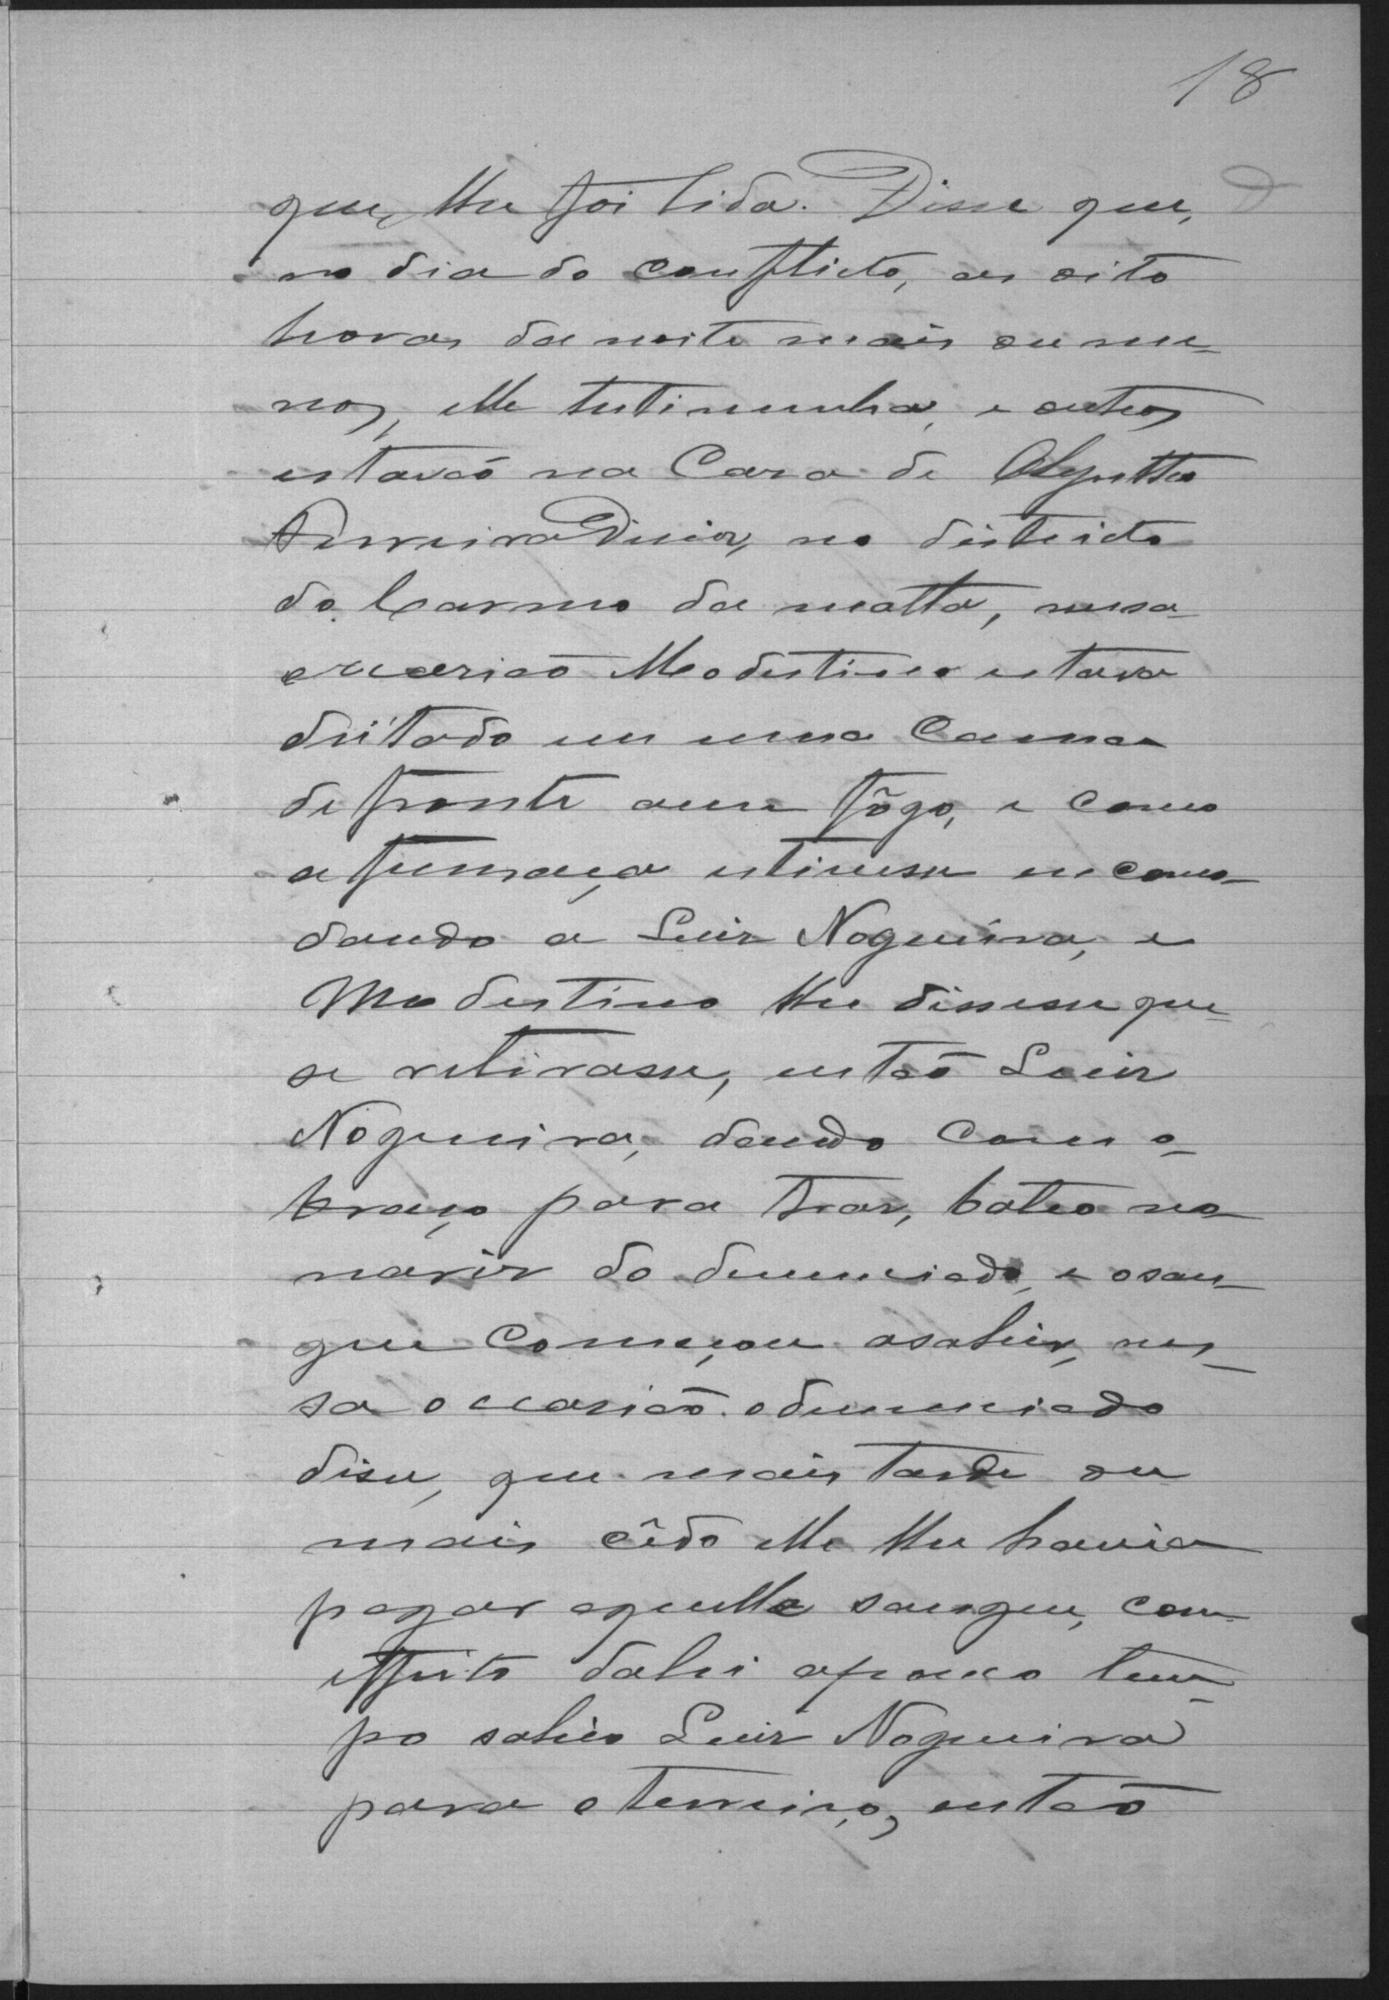 18
que, lhe foi lida. Disse que,
no dia do conflicto, as oito
horas da noite mais ou me-
nos, elle testimunha, e outros
estavaõ na Casa de
Ferreira Diniz, no districto
do Carmo da matta, nessa
occasiaõ Modestino estava
deitado em uma Cama
defronte aum fôgo, e como
a fumaça estivesse encomo-
dando a Luiz Nogueira, e
Modestino lhe dissesse que
se retirasse, entaõ Luiz
Nogueira, dando com o
braço para traz, bateo no
nariz do denunciado, e osan-
gue começou asahir, nes-
sa occasiaõ odenunciado
disse, que mais tarde ou
mais cêdo elle lhe havia
pagar aquelle sangue, com
effeito dahi apouco tem-
po sahio Luiz Nogueira
para oterreiro, entaõ